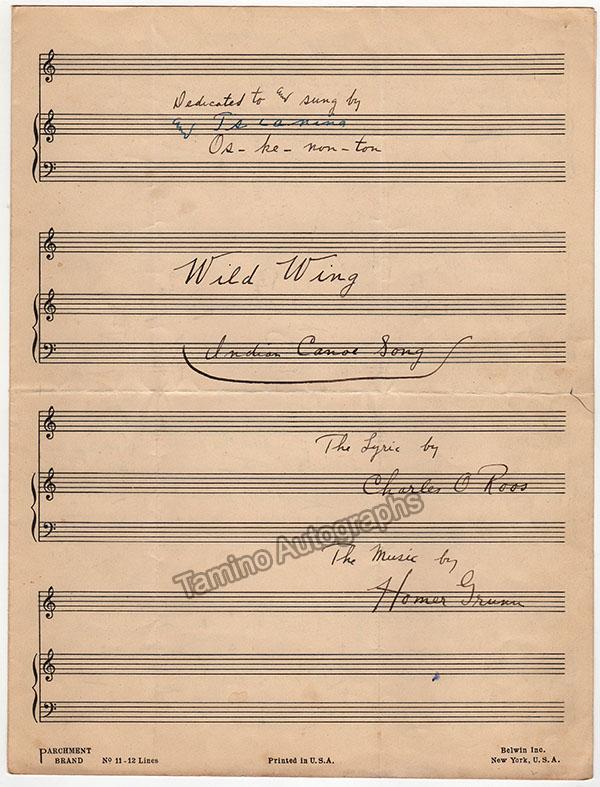 Dedicated to & sung by
& Tsianina
Os-ke-non-ton
Wild Wing
Indian Canoe Song
The Lyric by
Charles O Roos
Tamino Autographs
The Music by
Homer Grunn
PARCHMENT BRAND
Nº 11-12 Lines
Printed in U.S.A.
Belwin Inc.
New York, U.S.A.